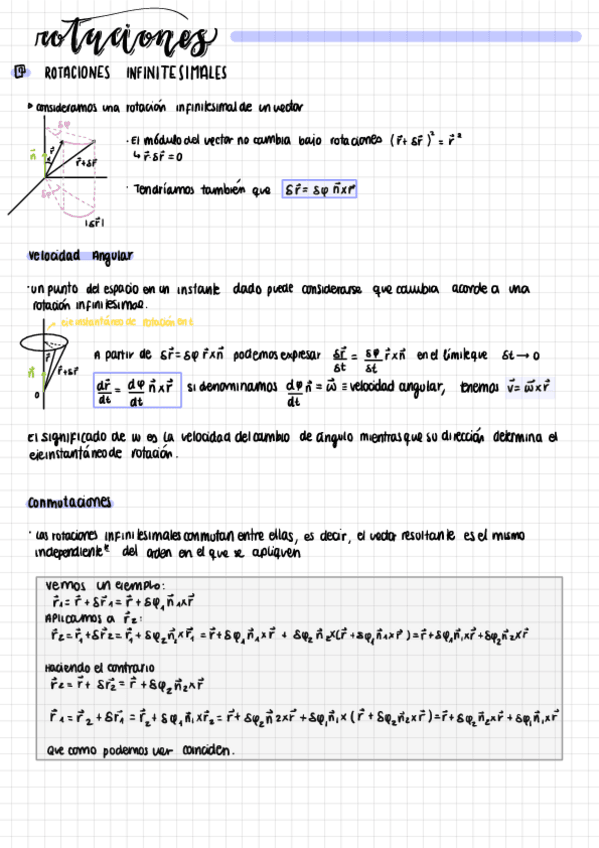 rotaciones
ROTACIONES INFINITESIMALES
consideramos una rotación infinitesimal de un vector
δφ
n⃗ r⃗ r⃗+δr⃗
δφ
|δr⃗|
· El módulo del vector no cambia bajo rotaciones (r⃗+δr⃗)² = r⃗²
↳ r⃗·δr⃗ = 0
· Tendríamos también que δr⃗ = δφ n⃗xr⃗
Velocidad Angular
· un punto del espacio en un instante dado puede considerarse que cambia acorde a una
rotación infinitesimal.
eje instantáneo de rotación en t
n⃗ r⃗ r⃗+δr⃗
0
A partir de δr⃗ = δφ r⃗xn⃗ podemos expresar δr⃗/δt = δφ/δt r⃗xn⃗ en el límite que δt→0
dr⃗/dt = dφ/dt n⃗xr⃗ si denominamos dφ/dt n⃗ = ω⃗ ≡ velocidad angular, tenemos v⃗ = ω⃗xr⃗
El significado de w es la velocidad del cambio de ángulo mientras que su dirección determina el
eje instantáneo de rotación.
Conmutaciones
· Las rotaciones infinitesimales conmutan entre ellas, es decir, el vector resultante es el mismo
independienteᵗᵉ del orden en el que se apliquen
Vemos un ejemplo:
r⃗₁ = r⃗ + δr⃗₁ = r⃗ + δφ₁n⃗₁xr⃗
Aplicamos a r⃗₂:
r⃗₂ = r⃗₁ + δr⃗₂ = r⃗₁ + δφ₂n⃗₂xr⃗₁ = r⃗ + δφ₁n⃗₁xr⃗ + δφ₂n⃗₂x(r⃗ + δφ₁n⃗₁xr⃗) = r⃗ + δφ₁n⃗₁xr⃗ + δφ₂n⃗₂xr⃗
Haciendo el contrario
r⃗₂ = r⃗ + δr⃗₂ = r⃗ + δφ₂n⃗₂xr⃗
r⃗₁ = r⃗₂ + δr⃗₁ = r⃗₂ + δφ₁n⃗₁xr⃗₂ = r⃗ + δφ₂n⃗₂xr⃗ + δφ₁n⃗₁x(r⃗ + δφ₂n⃗₂xr⃗) = r⃗ + δφ₂n⃗₂xr⃗ + δφ₁n⃗₁xr⃗
Que como podemos ver coinciden.